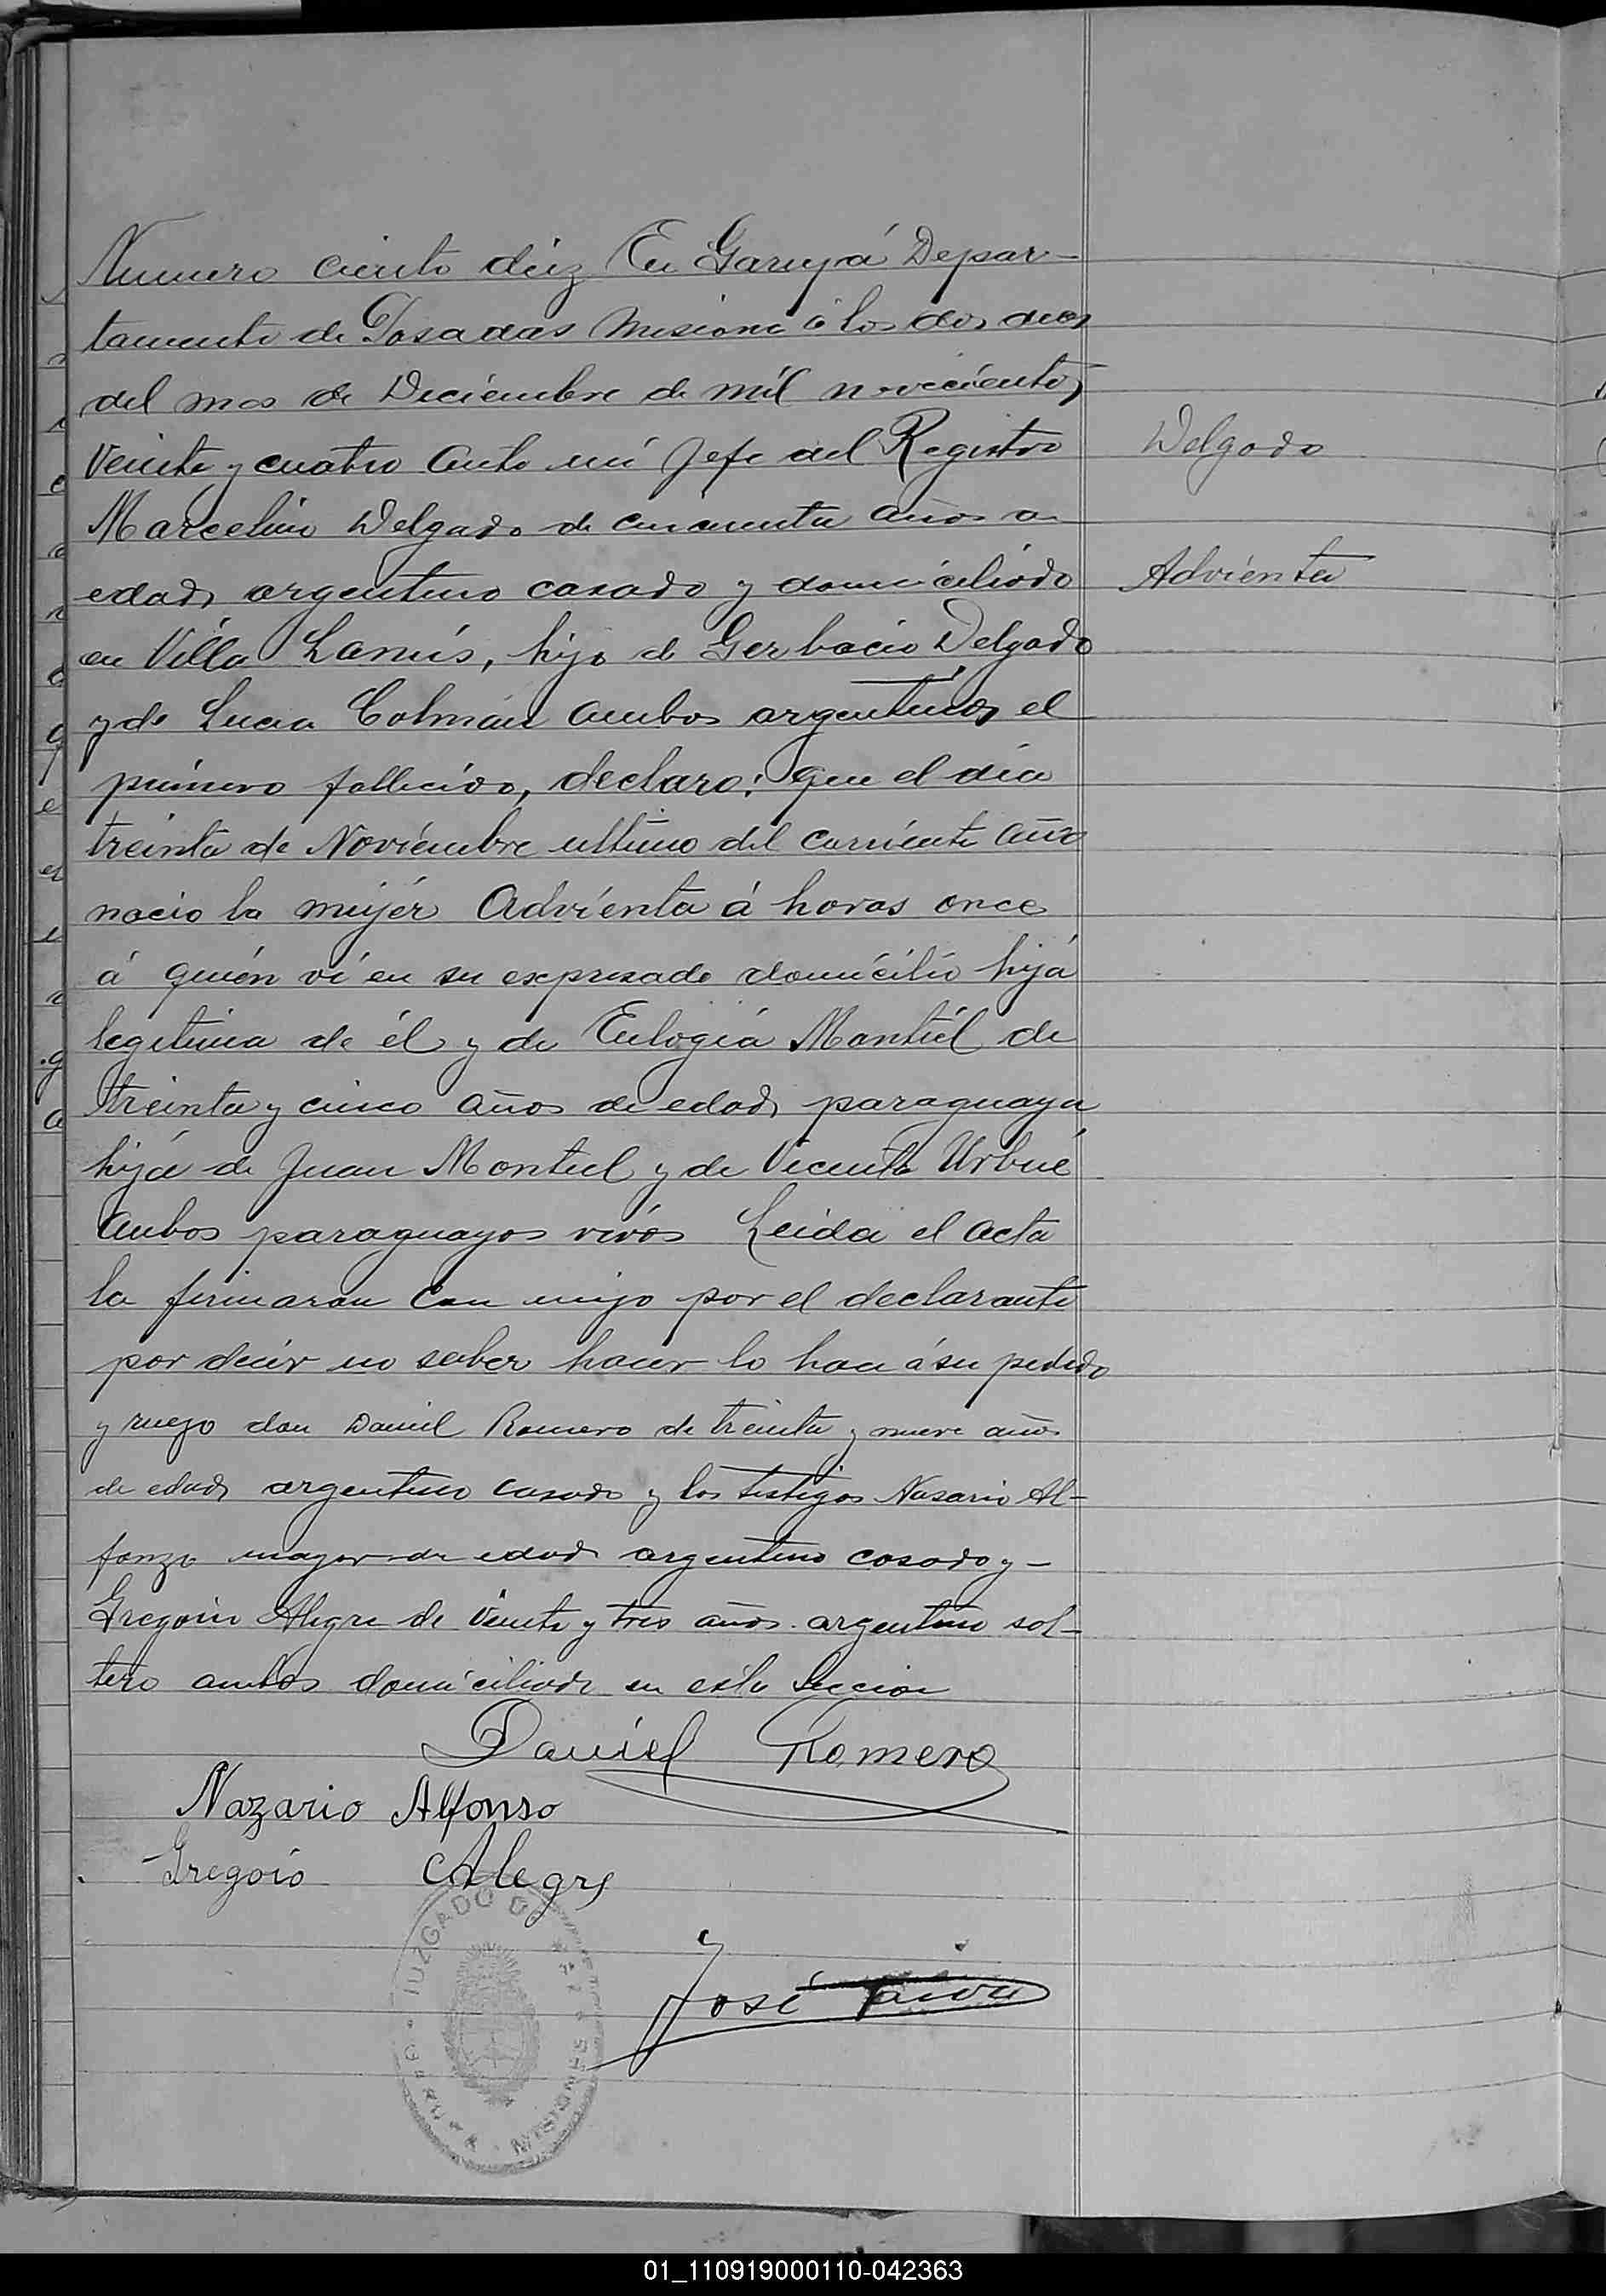 Numero ciento diez En Garupá Depar-
tamento de Posadas Misione á los dos dias
del mes de Diciembre de mil novecientos
Veinte y cuatro ante mi Jefe del Registro
Marcelino Delgado de cincuenta años de
edad, argentino casado y domiciliado
en Villa Lanús, hijo de Gerbacio Delgado
y de Lucia Colmán ambos argentinos, el
primero fallecido, declaro: que el día
treinta de Noviembre ultimo del corriente año
nacio la mujér Adviénta á horas once
á quién ví en su expresado domicilio hijá
legitima de él y de Eulogia Montiél de
treinta y cinco años de edad, paraguaya
hijá de Juan Montiel y de Vicenta
Ambos paraguayos vivós Leida el acta
la firmaron con migo por el declarante
por decir no saber hacer lo hace á su pedido
y ruego don Daniel Romero de treinta y nueve años
de edad, argentino casado y los testigos Nasario Al-
fonzo mayor de edad argentino casado y -
Gregorio Alegre de Veinte y tres años argentino sol-
tero ambos domiciliado en esta Seccion
Daniel Romero
Nazario Alfonso
Gregoio Alegre
José
Delgado
Advienta
JUZGADO DE PAZ
MISIONES
01_110919000110-042363